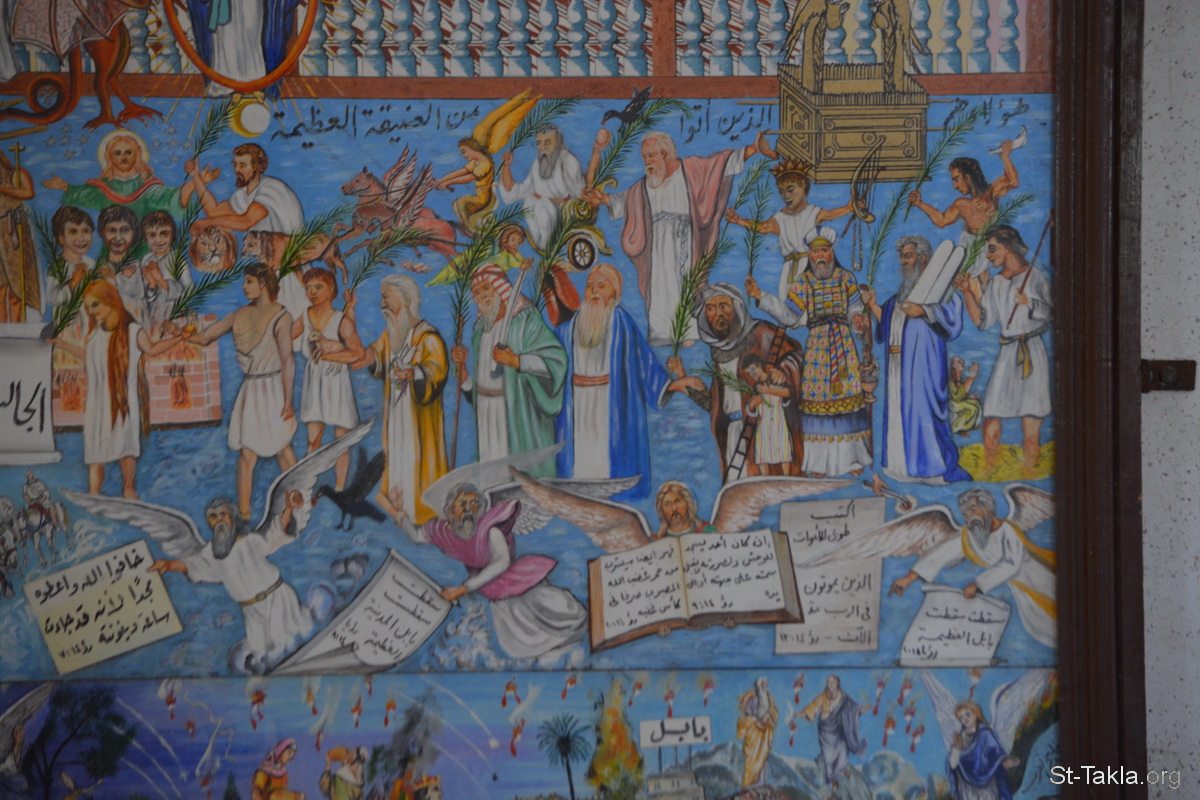 هؤلاء هم
الذين أتوا
من الضيقة العظيمة
خافوا الله وأعطوه
مجدًا لأنه قد جاءت
ساعة دينونته رؤ ١٤:٧
سقطت
سقطت
بابل المدينة
العظيمة
إن كان أحد يسجد
للوحش ولصورته ويقبل
سمته على جبهته أو على
يده
رؤ ١٤:٩
فهو أيضا سيشرب
من خمر غضب الله
المصبوب صرفا في
كأس غضبه
رؤ ١٤:١٠
اكتب
طوبى للأموات
الذين يموتون
في الرب منذ
الآن - رؤ ١٤:١٣
سقطت سقطت
بابل العظيمة
بابل
St-Takla.org